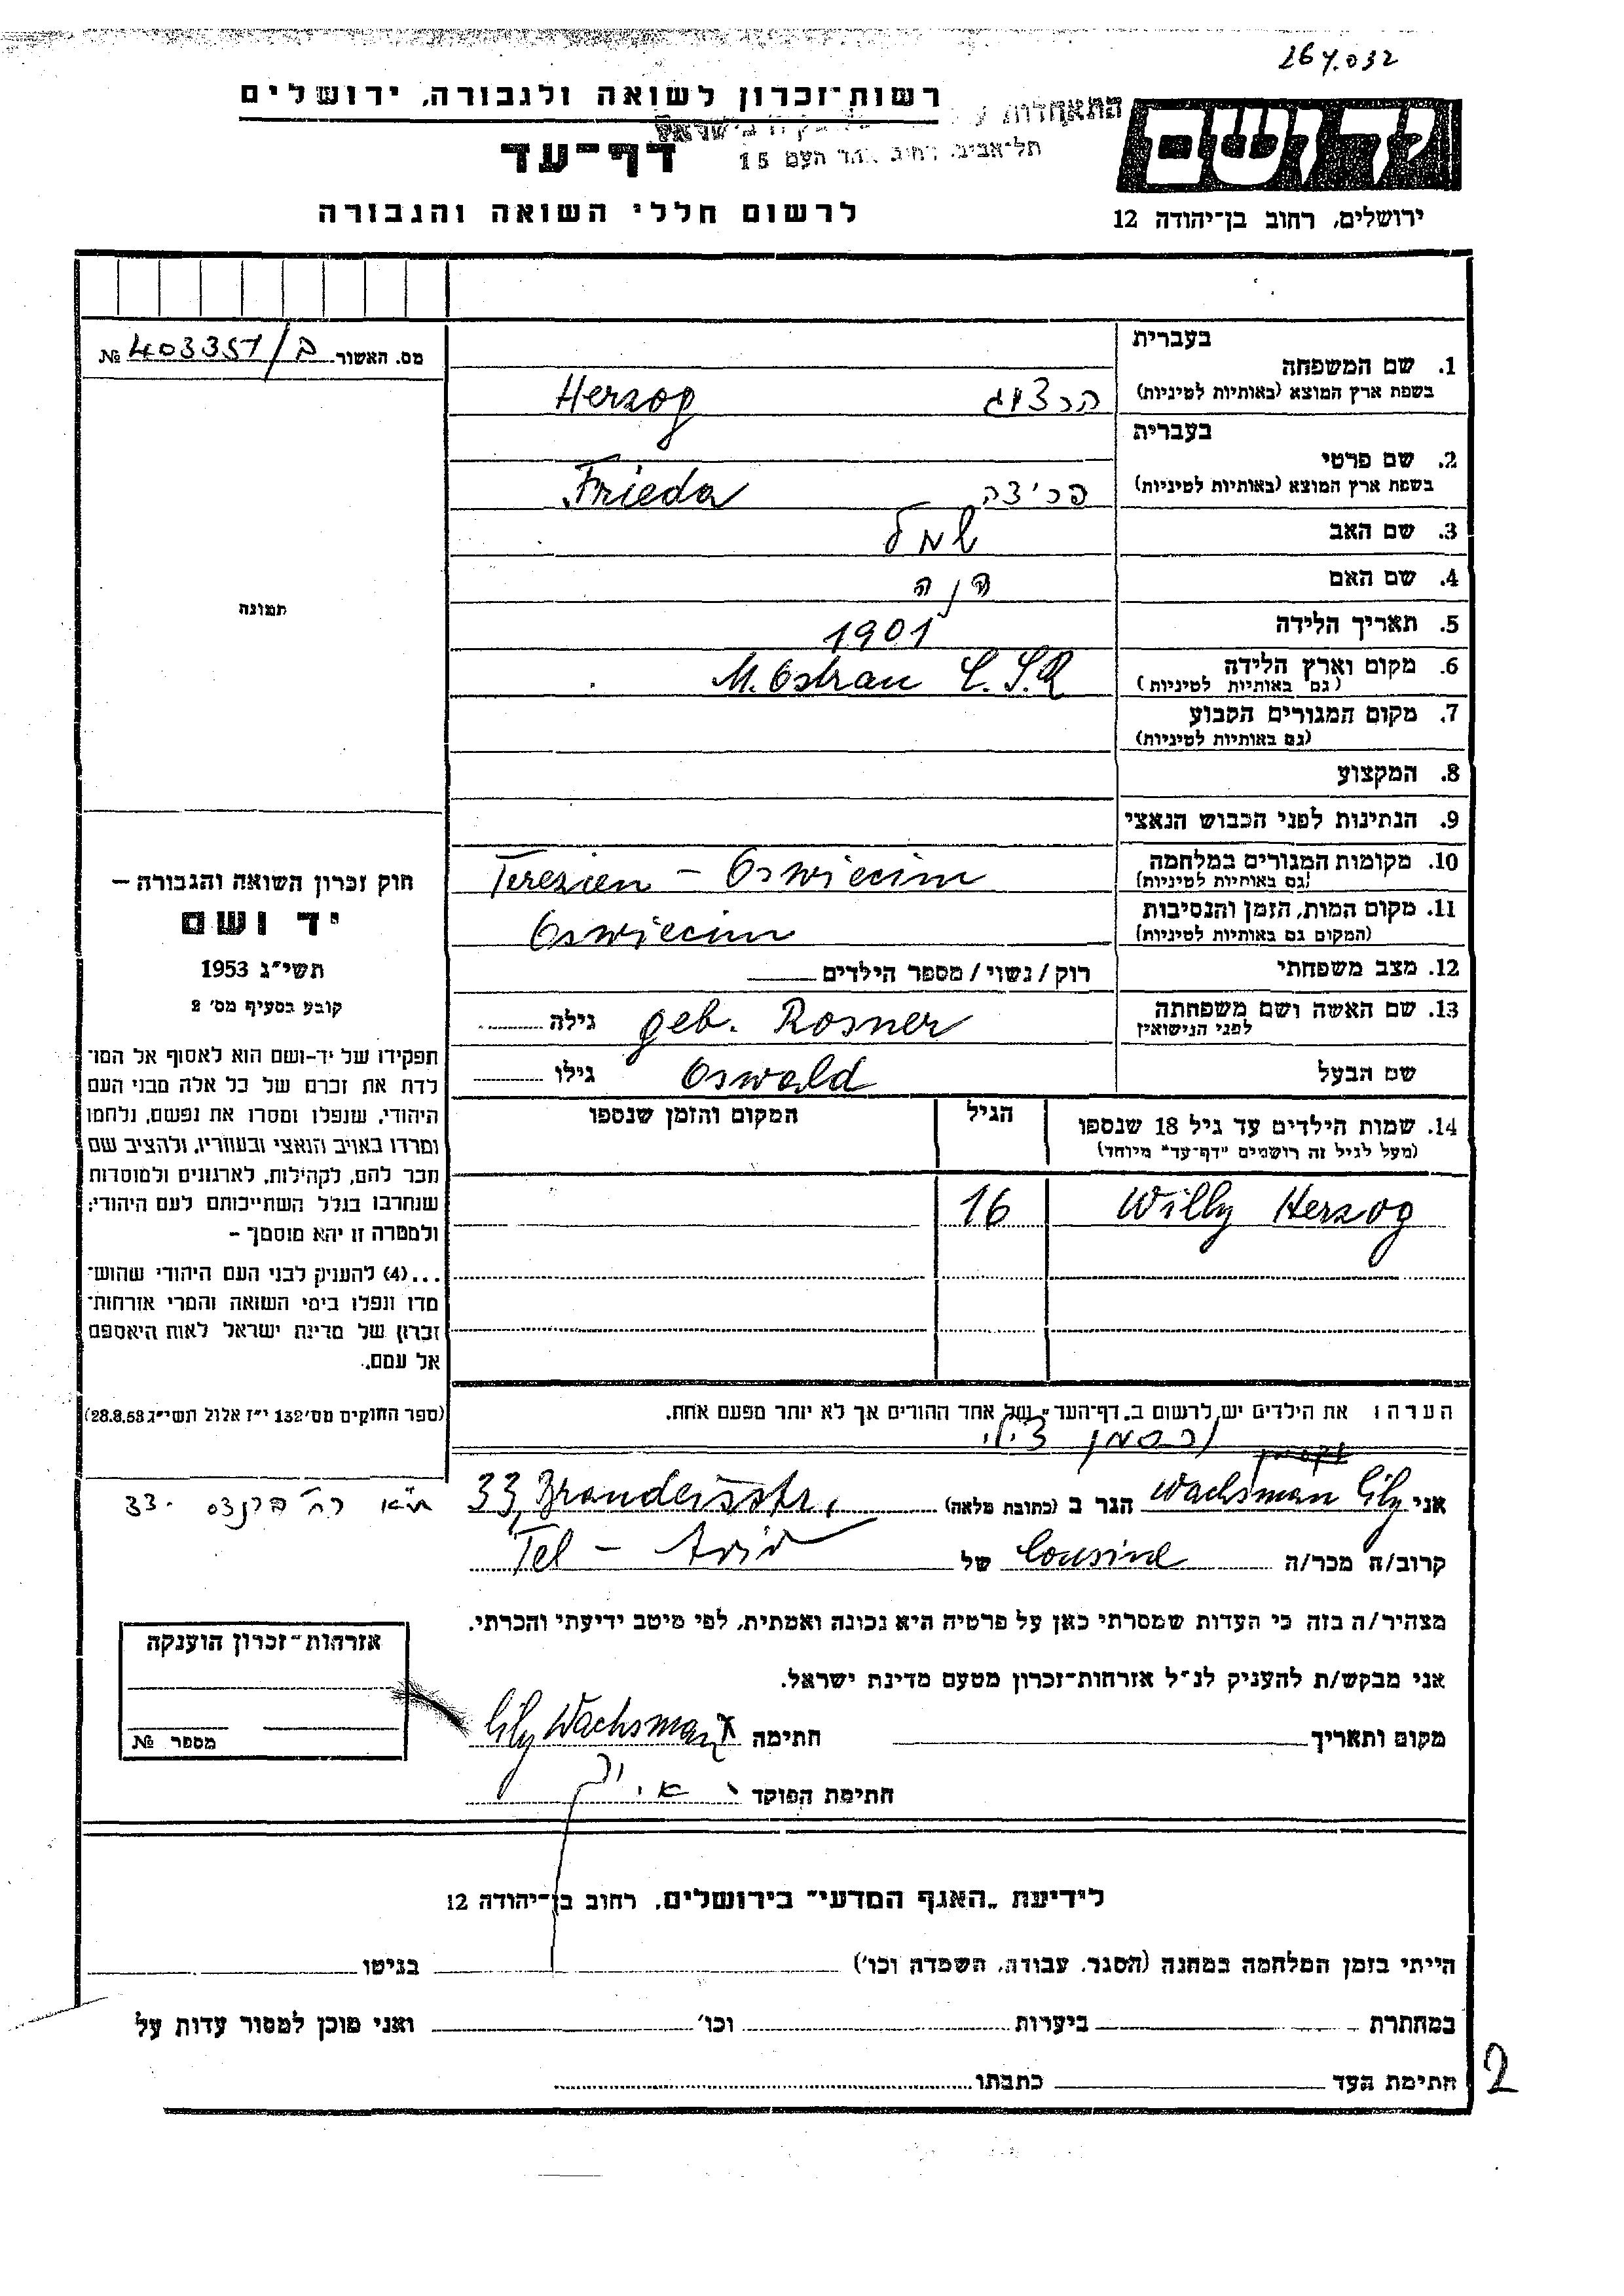 267.032
רשות-זכרון לשואה ולגבורה, ירושלים
יד ושם
התאחדות
בישראל
תל-אביב, רחוב אחד העם 15
דף-עד
לרשום חללי השואה והגבורה
ירושלים, רחוב בן-יהודה 12
מס. האשור ב/403351 №
בעברית
1. שם המשפחה
בשפת ארץ המוצא (באותיות לטיניות)
הרצוג Herzog
בעברית
2. שם פרטי
בשפת ארץ המוצא (באותיות לטיניות)
Frieda
3. שם האב
4. שם האם
5. תאריך הלידה 1901
6. מקום וארץ הלידה M. Ostrau Č.S.R
(גם באותיות לטיניות)
7. מקום המגורים הקבוע
(גם באותיות לטיניות)
8. המקצוע
9. הנתינות לפני הכבוש הנאצי
10. מקומות המגורים במלחמה Terezien - Oswiecim
(גם באותיות לטיניות)
11. מקום המות, הזמן והנסיבות Oswiecim
(המקום גם באותיות לטיניות)
12. מצב משפחתי רוק / נשוי / מספר הילדים
13. שם האשה ושם משפחתה geb. Rosner גילה
לפני הנישואין
שם הבעל Oswald גילו
14. שמות הילדים עד גיל 18 שנספו הגיל המקום והזמן שנספו
(מעל לגיל זה רושמים "דף-עד" מיוחד)
Willy Herzog 16
תמונה
חוק זכרון השואה והגבורה –
יד ושם
תשי"ג 1953
קובע בסעיף מס' 2
תפקידו של יד-ושם הוא לאסוף אל המו־
לדת את זכרם של כל אלה מבני העם
היהודי, שנפלו ומסרו את נפשם, נלחמו
ומרדו באויב הנאצי ובעוזריו, ולהציב שם
וזכר להם, לקהילות, לארגונים ולמוסדות
שנחרבו בגלל השתייכותם לעם היהודי;
ולמטרה זו יהא מוסמך –
...(4) להעניק לבני העם היהודי שהוש־
מדו ונפלו בימי השואה והמרי אזרחות־
זכרון של מדינת ישראל לאות היאספם
אל עמם.
(ספר החוקים מס' 132 י"ז אלול תשי"ג 28.8.53)
הערה: את הילדים יש לרשום ב„דף-העד" של אחד ההורים אך לא יותר מפעם אחת.
וכסמן צילי
אני Wachsman Cily הגר ב (כתובת מלאה) 33, Brandeisstr,
ת"א רח' ברנדס 33
קרוב/ה מכר/ה Cousine של Tel - Aviv
מצהיר/ה בזה כי העדות שמסרתי כאן על פרטיה היא נכונה ואמתית, לפי מיטב ידיעתי והכרתי.
אני מבקש/ת להעניק לנ"ל אזרחות-זכרון מטעם מדינת ישראל.
מקום ותאריך חתימה Cily Wachsman
חתימת הפוקד
אזרחות-זכרון הוענקה
מספר №
לידיעת „האגף המדעי" בירושלים, רחוב בן-יהודה 12
הייתי בזמן המלחמה במחנה (הסגר, עבודה, השמדה וכו') בגיטו
במחתרת ביערות וכו' ואני מוכן למסור עדות על
חתימת העד כתבתו
2